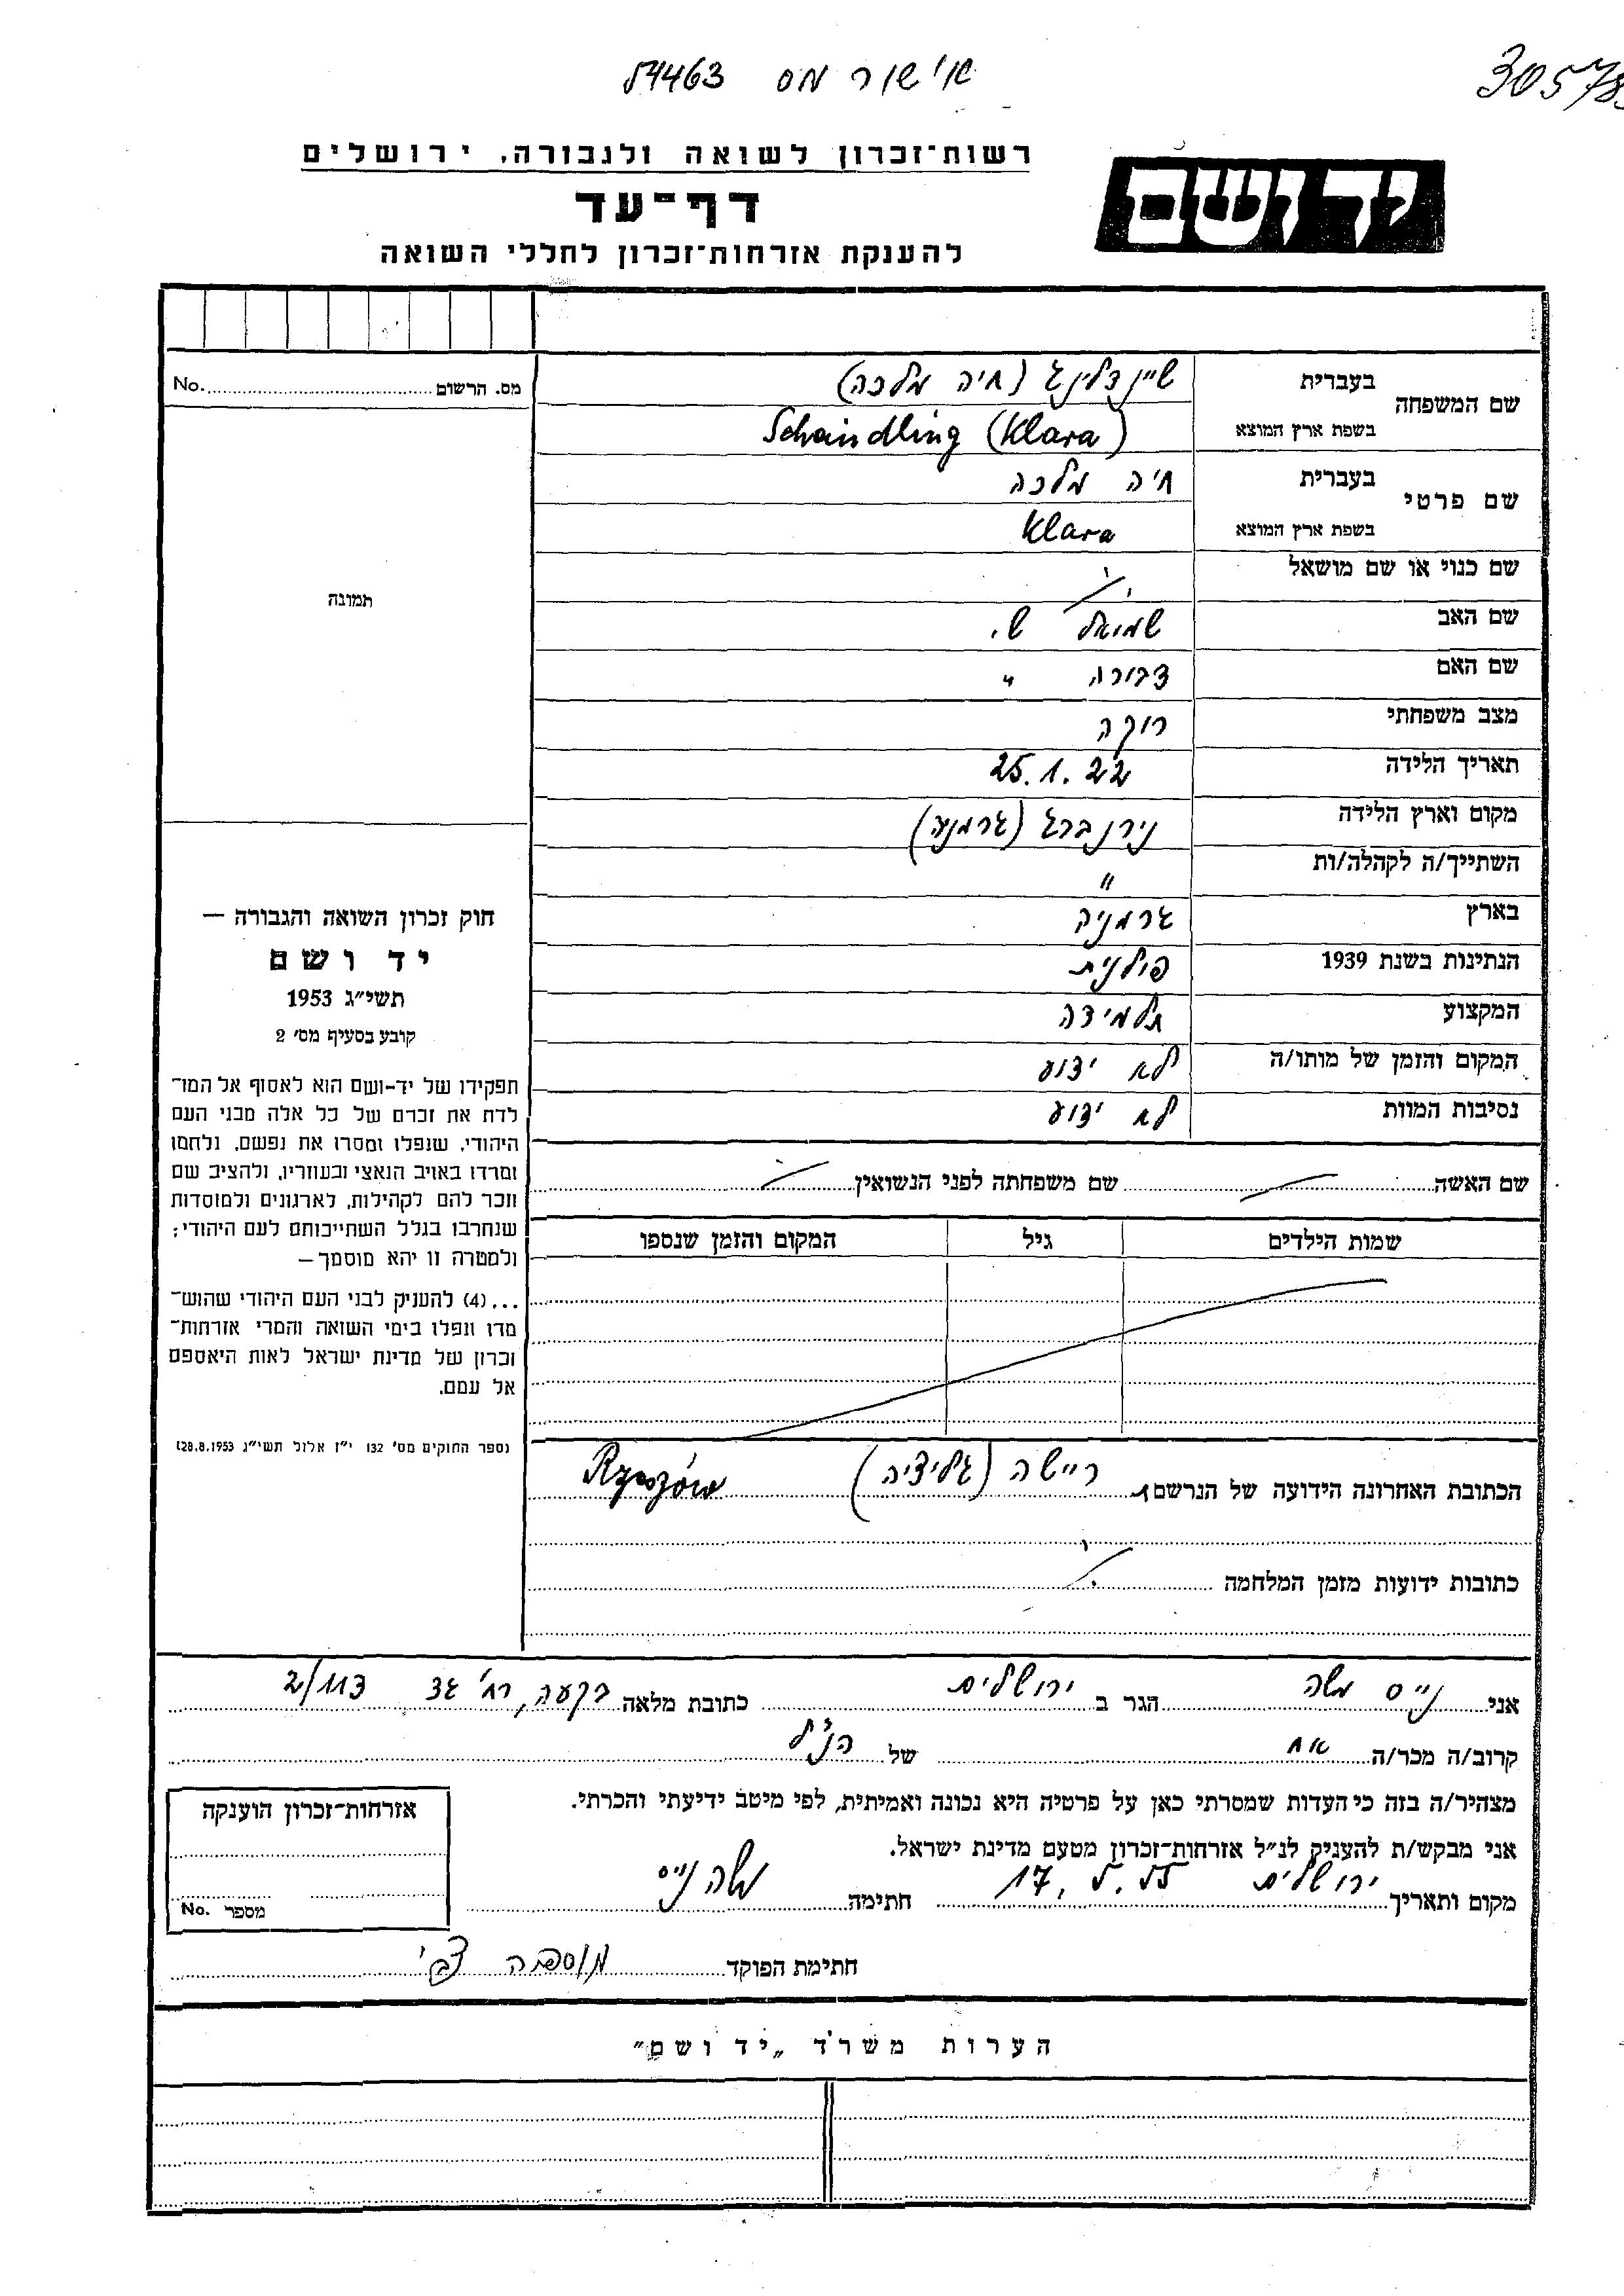 אישור מס 54463
30578
רשות־זכרון לשואה ולגבורה, ירושלים
יד ושם
דף־עד
להענקת אזרחות־זכרון לחללי השואה
מס. הרשום No.
תמונה
שם המשפחה בעברית שיינדלינג (חיה מלכה)
בשפת ארץ המוצא Schaindling (Klara)
שם פרטי בעברית חיה מלכה
בשפת ארץ המוצא Klara
שם כנוי או שם מושאל
שם האב שמואל ש.
שם האם דבורה "
מצב משפחתי רוקה
תאריך הלידה 25.1.22
מקום וארץ הלידה נירנברג (גרמניה)
השתייך/ה לקהלה/ות "
בארץ גרמניה
הנתינות בשנת 1939 פולנית
המקצוע תלמידה
המקום והזמן של מותו/ה לא ידוע
נסיבות המוות לא ידוע
שם האשה שם משפחתה לפני הנשואין
שמות הילדים גיל המקום והזמן שנספו
הכתובת האחרונה הידועה של הנרשם ריישה (גליציה) Rzeszów
כתובות ידועות מזמן המלחמה
חוק זכרון השואה והגבורה —
יד ושם
תשי״ג 1953
קובע בסעיף מס׳ 2
תפקידו של יד-ושם הוא לאסוף אל המו־
לדת את זכרם של כל אלה מבני העם
היהודי, שנפלו ומסרו את נפשם, נלחמו
ומרדו באויב הנאצי ובעוזריו, ולהציב שם
וזכר להם לקהילות, לארגונים ולמוסדות
שנחרבו בגלל השתייכותם לעם היהודי;
ולמטרה זו יהא מוסמך —
...(4) להעניק לבני העם היהודי שהוש־
מדו ונפלו בימי השואה והמרי אזרחות־
זכרון של מדינת ישראל לאות היאספם
אל עמם.
(ספר החוקים מס׳ 132 י״ז אלול תשי״ג 28.8.1953)
אני נייס משה הגר ב ירושלים כתובת מלאה בקעה, רח׳ גד 113/2
קרוב/ה מכר/ה אח של הנ״ל
מצהיר/ה בזה כי העדות שמסרתי כאן על פרטיה היא נכונה ואמיתית, לפי מיטב ידיעתי והכרתי.
אני מבקש/ת להעניק לנ״ל אזרחות־זכרון מטעם מדינת ישראל.
מקום ותאריך ירושלים 17.5.55 חתימה משה נייס
חתימת הפוקד צבי
אזרחות־זכרון הוענקה
מספר No.
הערות משרד „יד ושם״